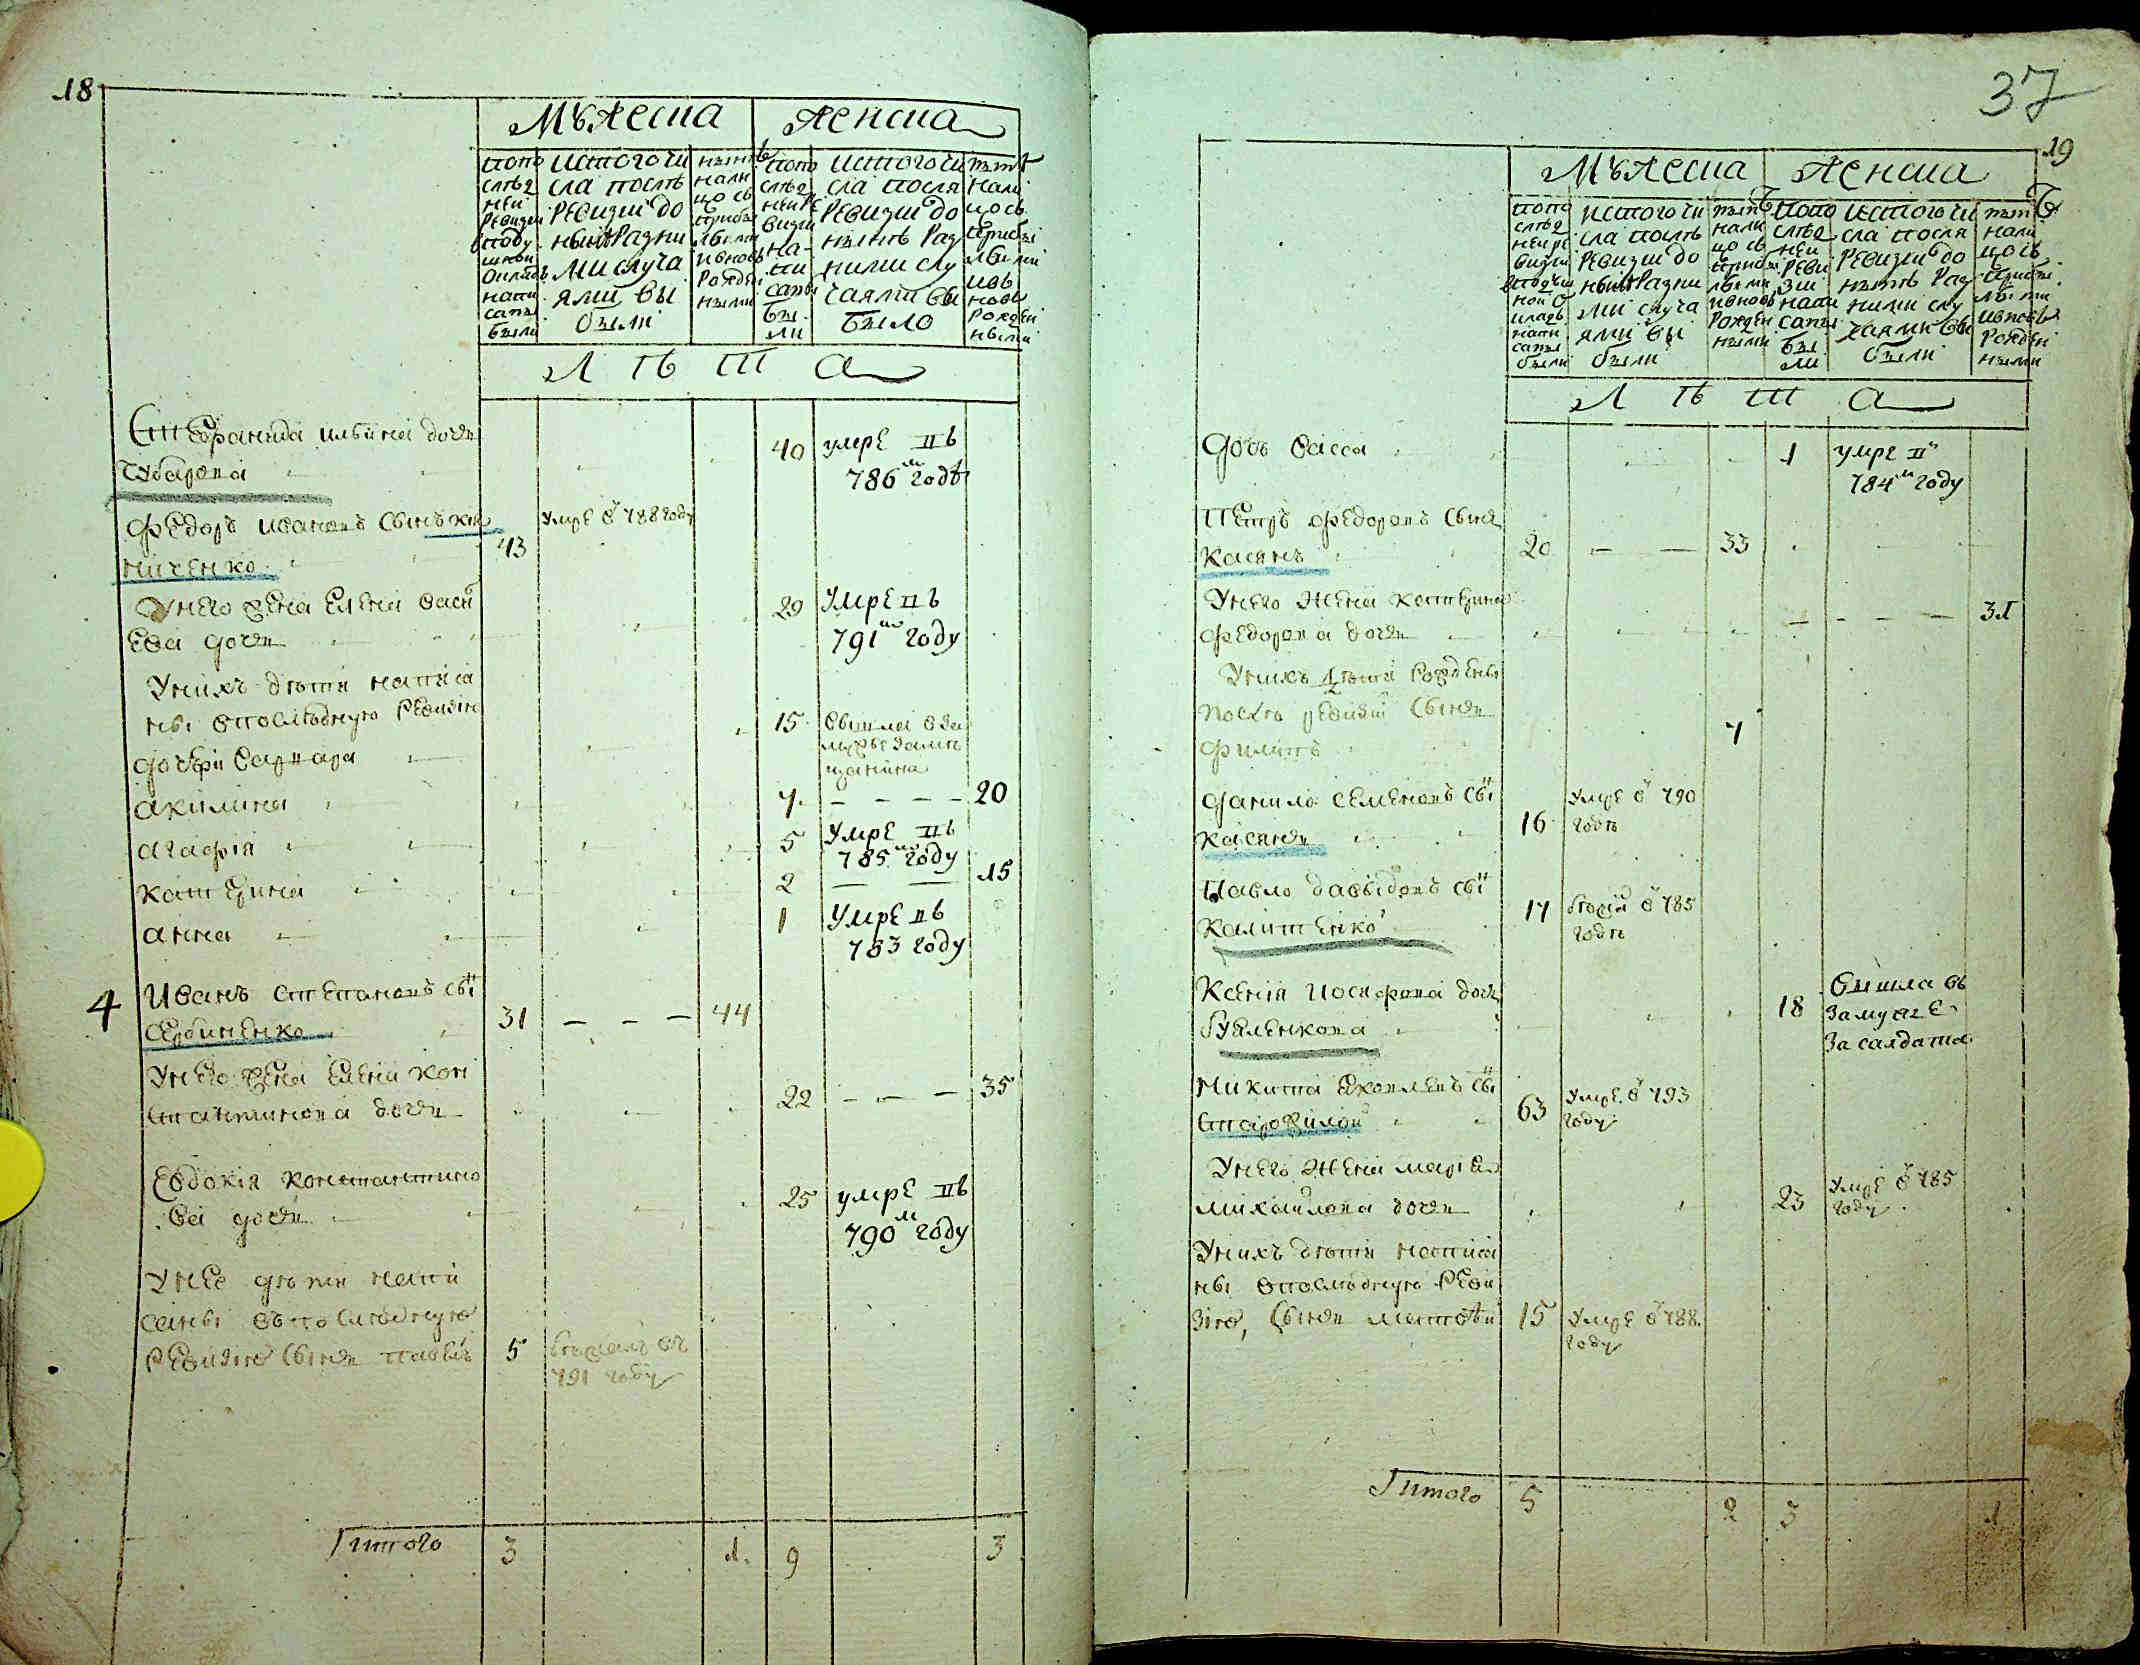 18
Мужеска женска
попо
слѣд
ней
Ревизи
написа
были
истого чи
сла послѣ
Ревизии до
ными случа
ями вы
были
нынѣ
нали
цо съ
прибы
лыми
ивновь
Рожде
ными
попо
слѣд
ней Ре
визии
на
пи
саны
бы
ли
истого чи
сла посля
Ревизии до
нынѣ раз
ними слу
чаями вы
было
нынѣ
нали
цо съ
прибы
лыми
ивь
новь
рожден
ными
Л ѣ т а
Степанида ильина дочь
Губарева 40 умре въ
786м годѣ
Федоръ ивановъ сынъ кон
ниченко 43 умре в 788 году
Унего жена Елена васи
ева дочь 29 умре въ
791м году
Унихъ дѣти написа
ны впослѣдную Ревизию
дочери варвара 15 вышла вза
мужъе замѣ
щанина
акилина 7 20
агафия 5 умре въ
785м году
катерина 2 15
анна 1 умре въ
783 году
4 Иванъ степановъ сы
Сербиненко 31 44
Унего жена Елена кон
стантинова дочь 22 35
Евдокия константино
ва дочь 25 умре въ
790м году
Унее дѣти напи
саны въпослѣдную
Ревизию сынъ павелъ 5
791 году
Итого 3 1 9 3
37
19
Мужеска женска
попо
слѣд
ней ре
визии
напи
саны
были
истого чи
сла послѣ
Ревизии до
ми случа
ями вы
были
нынѣ
нали
цо съ
прибы
лыми
ивновь
Рожден
ными
попо
слѣд
ней
Реви
зии
напи
саны
бы
ли
истого чи
сла посля
Ревизии до
нынѣ раз
ними слу
чаями вы
были
нынѣ
нали
цо съ
прибы
лыми
ивновь
Рожден
ными
Л ѣ т а
дочь васса 1 умре въ
784м году
Петръ федоровъ сынъ
Касянъ 20 33
Унего жена катерина
федорова дочь 31
Унихъ дѣти рожденны
послѣ ревизии сынъ
филипъ 7
данило семеновъ сы
касянъ 16 умре в 790
годѣ
Павло давыдовъ сы
Калитенко 17 в 785
годѣ
Ксения иосифова дочь
18 вышла въ
замуже
за салдата
Микита яковлевъ сы
Старожилой 63 умре в 793
году
Унего жена мария
михайлова дочь 23 умре в 785
году
Унихъ дѣти написа
ны впослѣдную Реви
зию, сынъ матвѣй 15 умре в 788
году
Итого 5 2 3 1